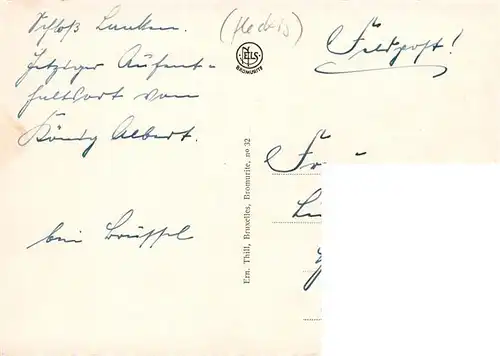 Schloß Laeken.
Jetziger Aufent-
haltsort von
König Albert.
bei Brüssel
NELS
BROMURITE
Ern. Thill, Bruxelles, Bromurite, nº 32
Feldpost!